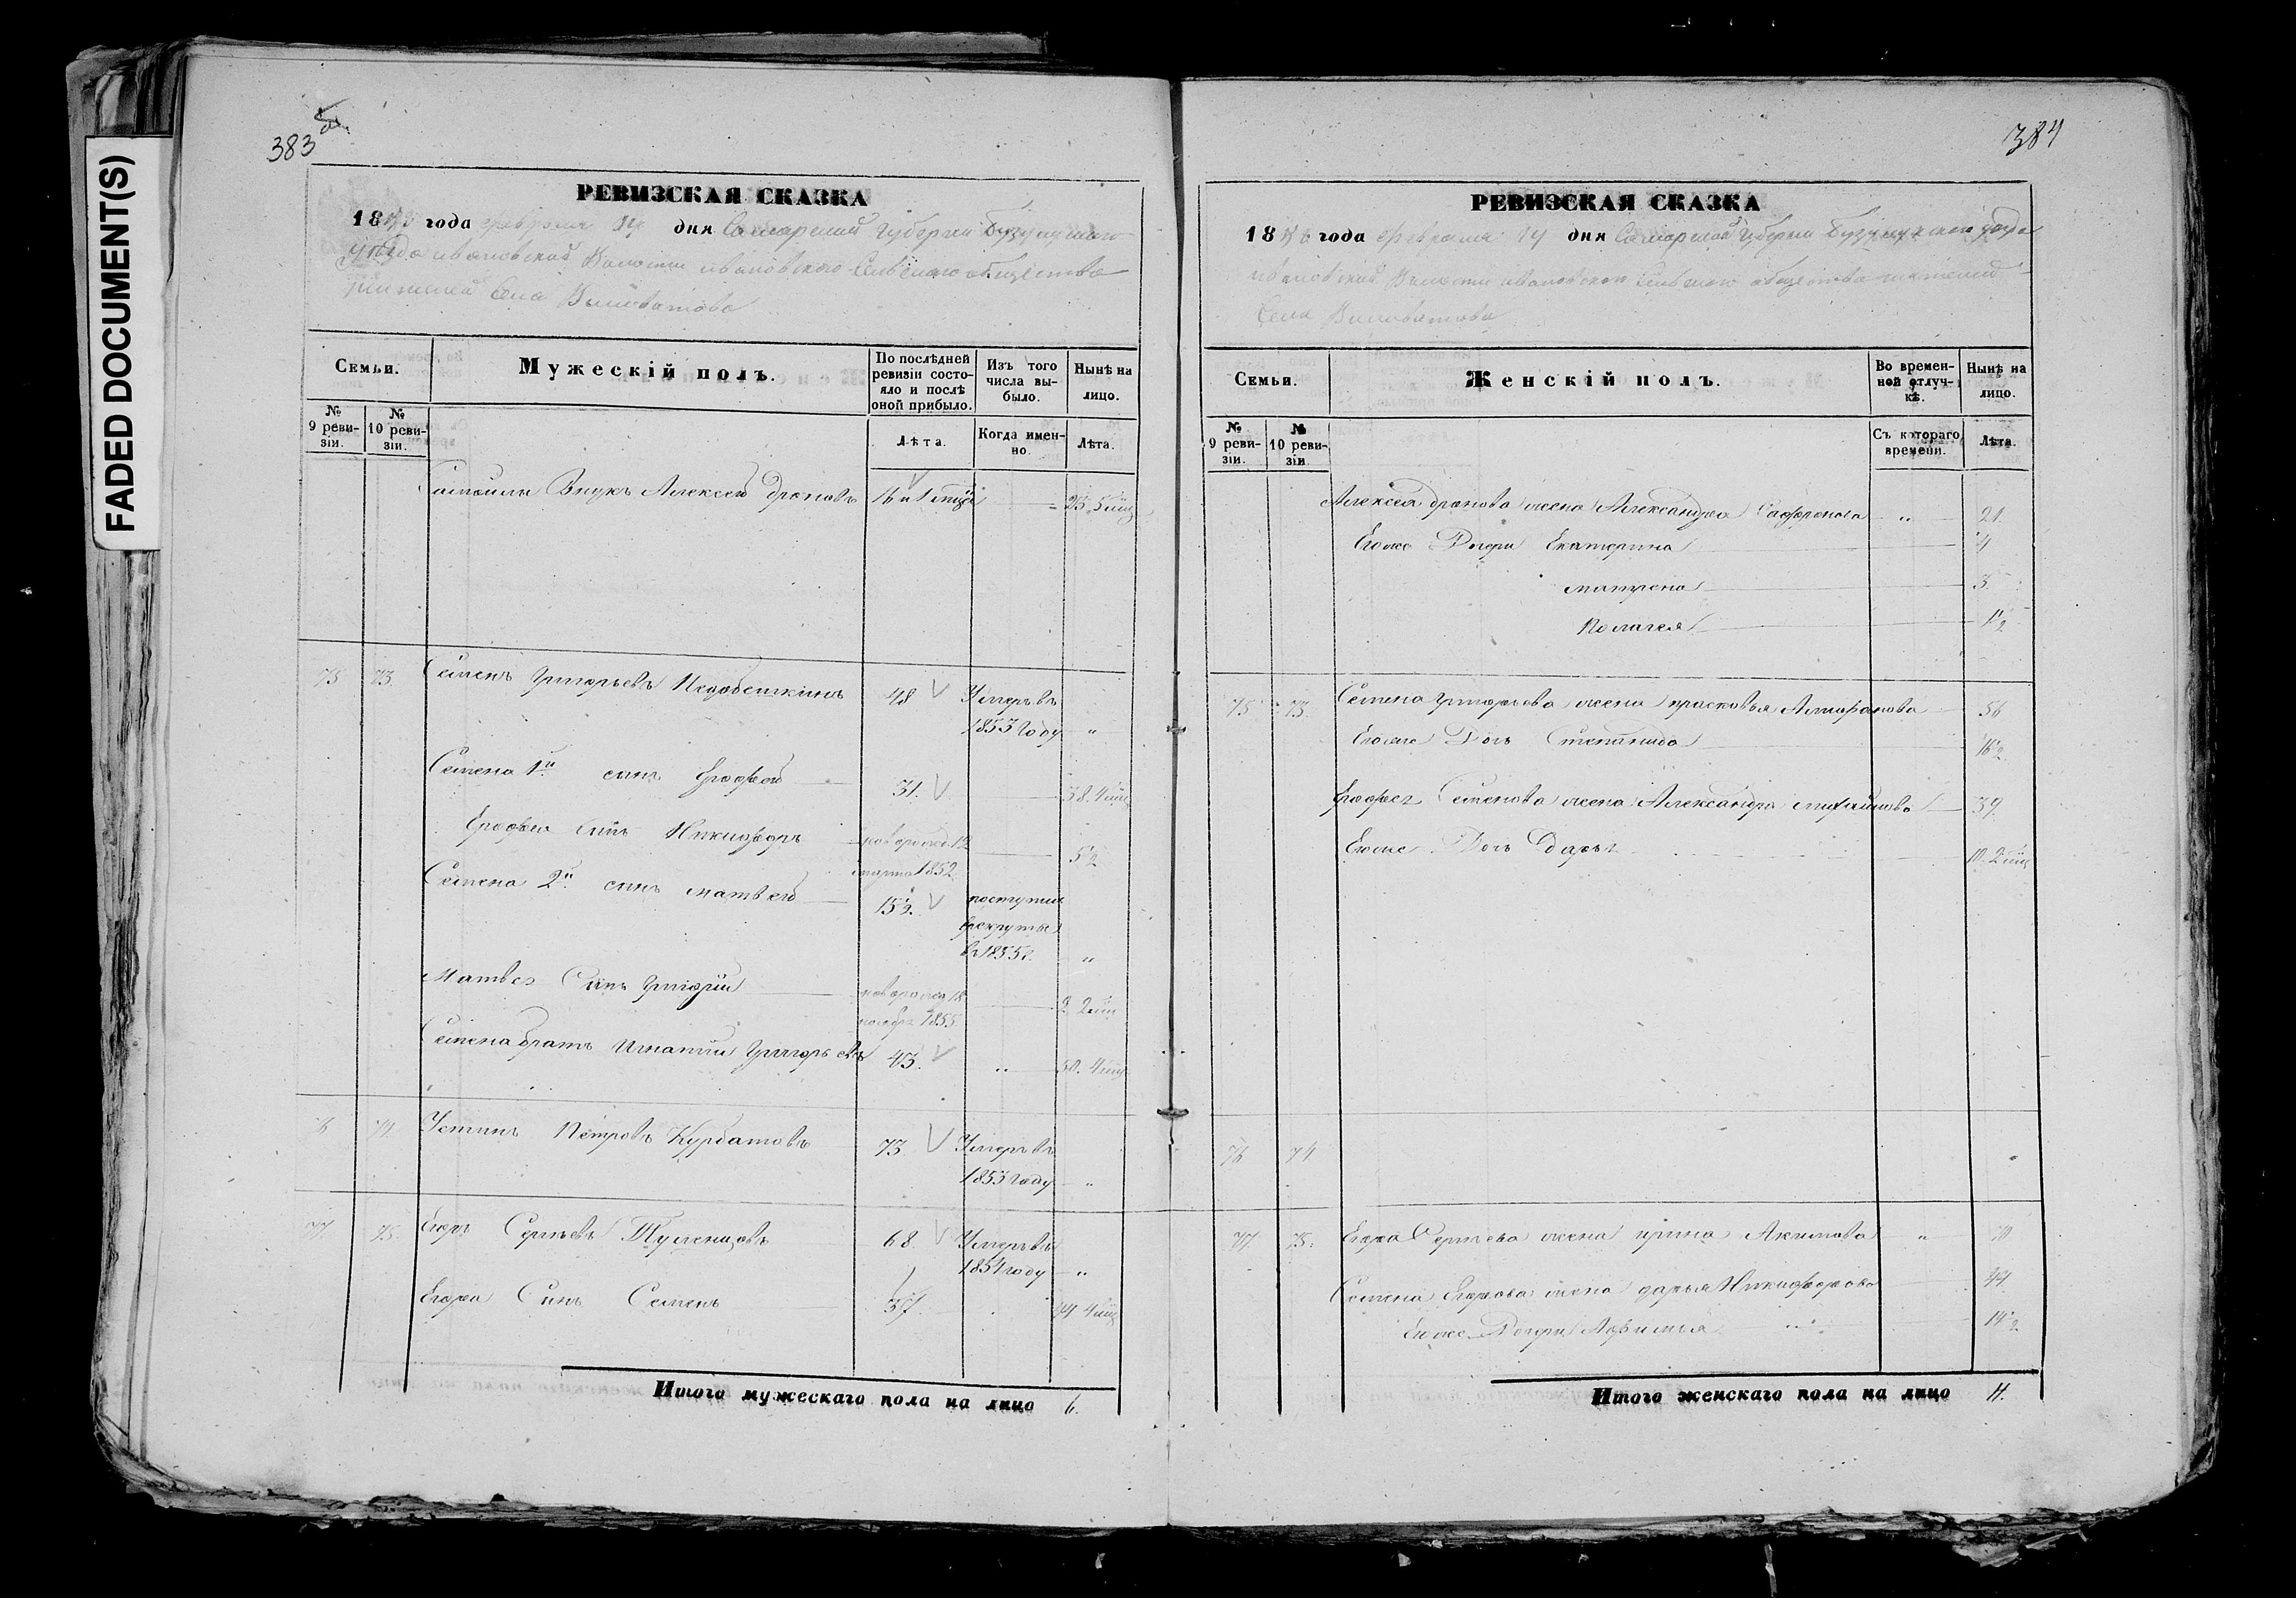 FADED DOCUMENT(S)
383
РЕВИЗСКАЯ СКАЗКА
18 года февраля 14 дня Самарской Губернии Бузулукского
уезда ивановской Волости ивановского Сельского общества
Села Виловатова
Семьи.
Мужескій полъ.
По послѣдней ревизіи состо-
яло и послѣ оной прибыло.
Изъ того числа вы-
было.
Нынѣ на лицо.
№ 9 реви-
зіи.
№ 10 реви-
зіи.
Лѣта.
Когда имен-
но.
Лѣта.
Внукъ Алексей 16
75 73 Семенъ Григорьевъ 48 Умеръ въ
1853 году "
Семена 1й сынъ Ерофей 31. 38. 4 мц
Ерофея Сынъ Никифоръ новорожд 12 5½
марта 1852
Семена 2й сынъ матвей 15½ поступил
в рекруты
в 1855 г. "
Матвея Сынъ Григорий новорожд 18 2. 2 мц
1855
Семена братъ Игнатий Григорьевъ 43. " 50. 4 мц
76 74 Устинъ Петровъ Курбатовъ 73 Умеръ въ
1853 году "
77 75 Егоръ Сергѣевъ 68 Умеръ въ
1854 году "
Егора Сынъ Семенъ 37 44 4 мц
Итого мужескаго пола на лицо 6.
384
РЕВИЗСКАЯ СКАЗКА
18 года февраля 14 дня Самарской Губернии Бузулукского уезда
ивановской Волости ивановского Сельского общества
Села Виловатова
Семьи.
Женскій полъ.
Во времен-
ной отлуч-
кѣ.
Нынѣ на лицо.
№ 9 реви-
зіи.
№ 10 реви-
зіи
Съ котораго времени.
Лѣта.
Алексея жена Александра Сафронова " 21.
Егоже Дочери Екатерина 4
матрена 3
Полагея 1½
75 73 Семена Григорьева жена прасковья 56
Егоже Дочь Степанида 16½
Ерофея Семенова жена Александра михайлова 39
Егоже Дочь Дарья 10. 2 мц
76 74
77 75. Егора Сергѣева жена ирина Акимова " 70
Семена Егорова жена дарья Никифорова 44
Егоже Дочери Афимья 14½
Итого женскаго пола на лицо 11.